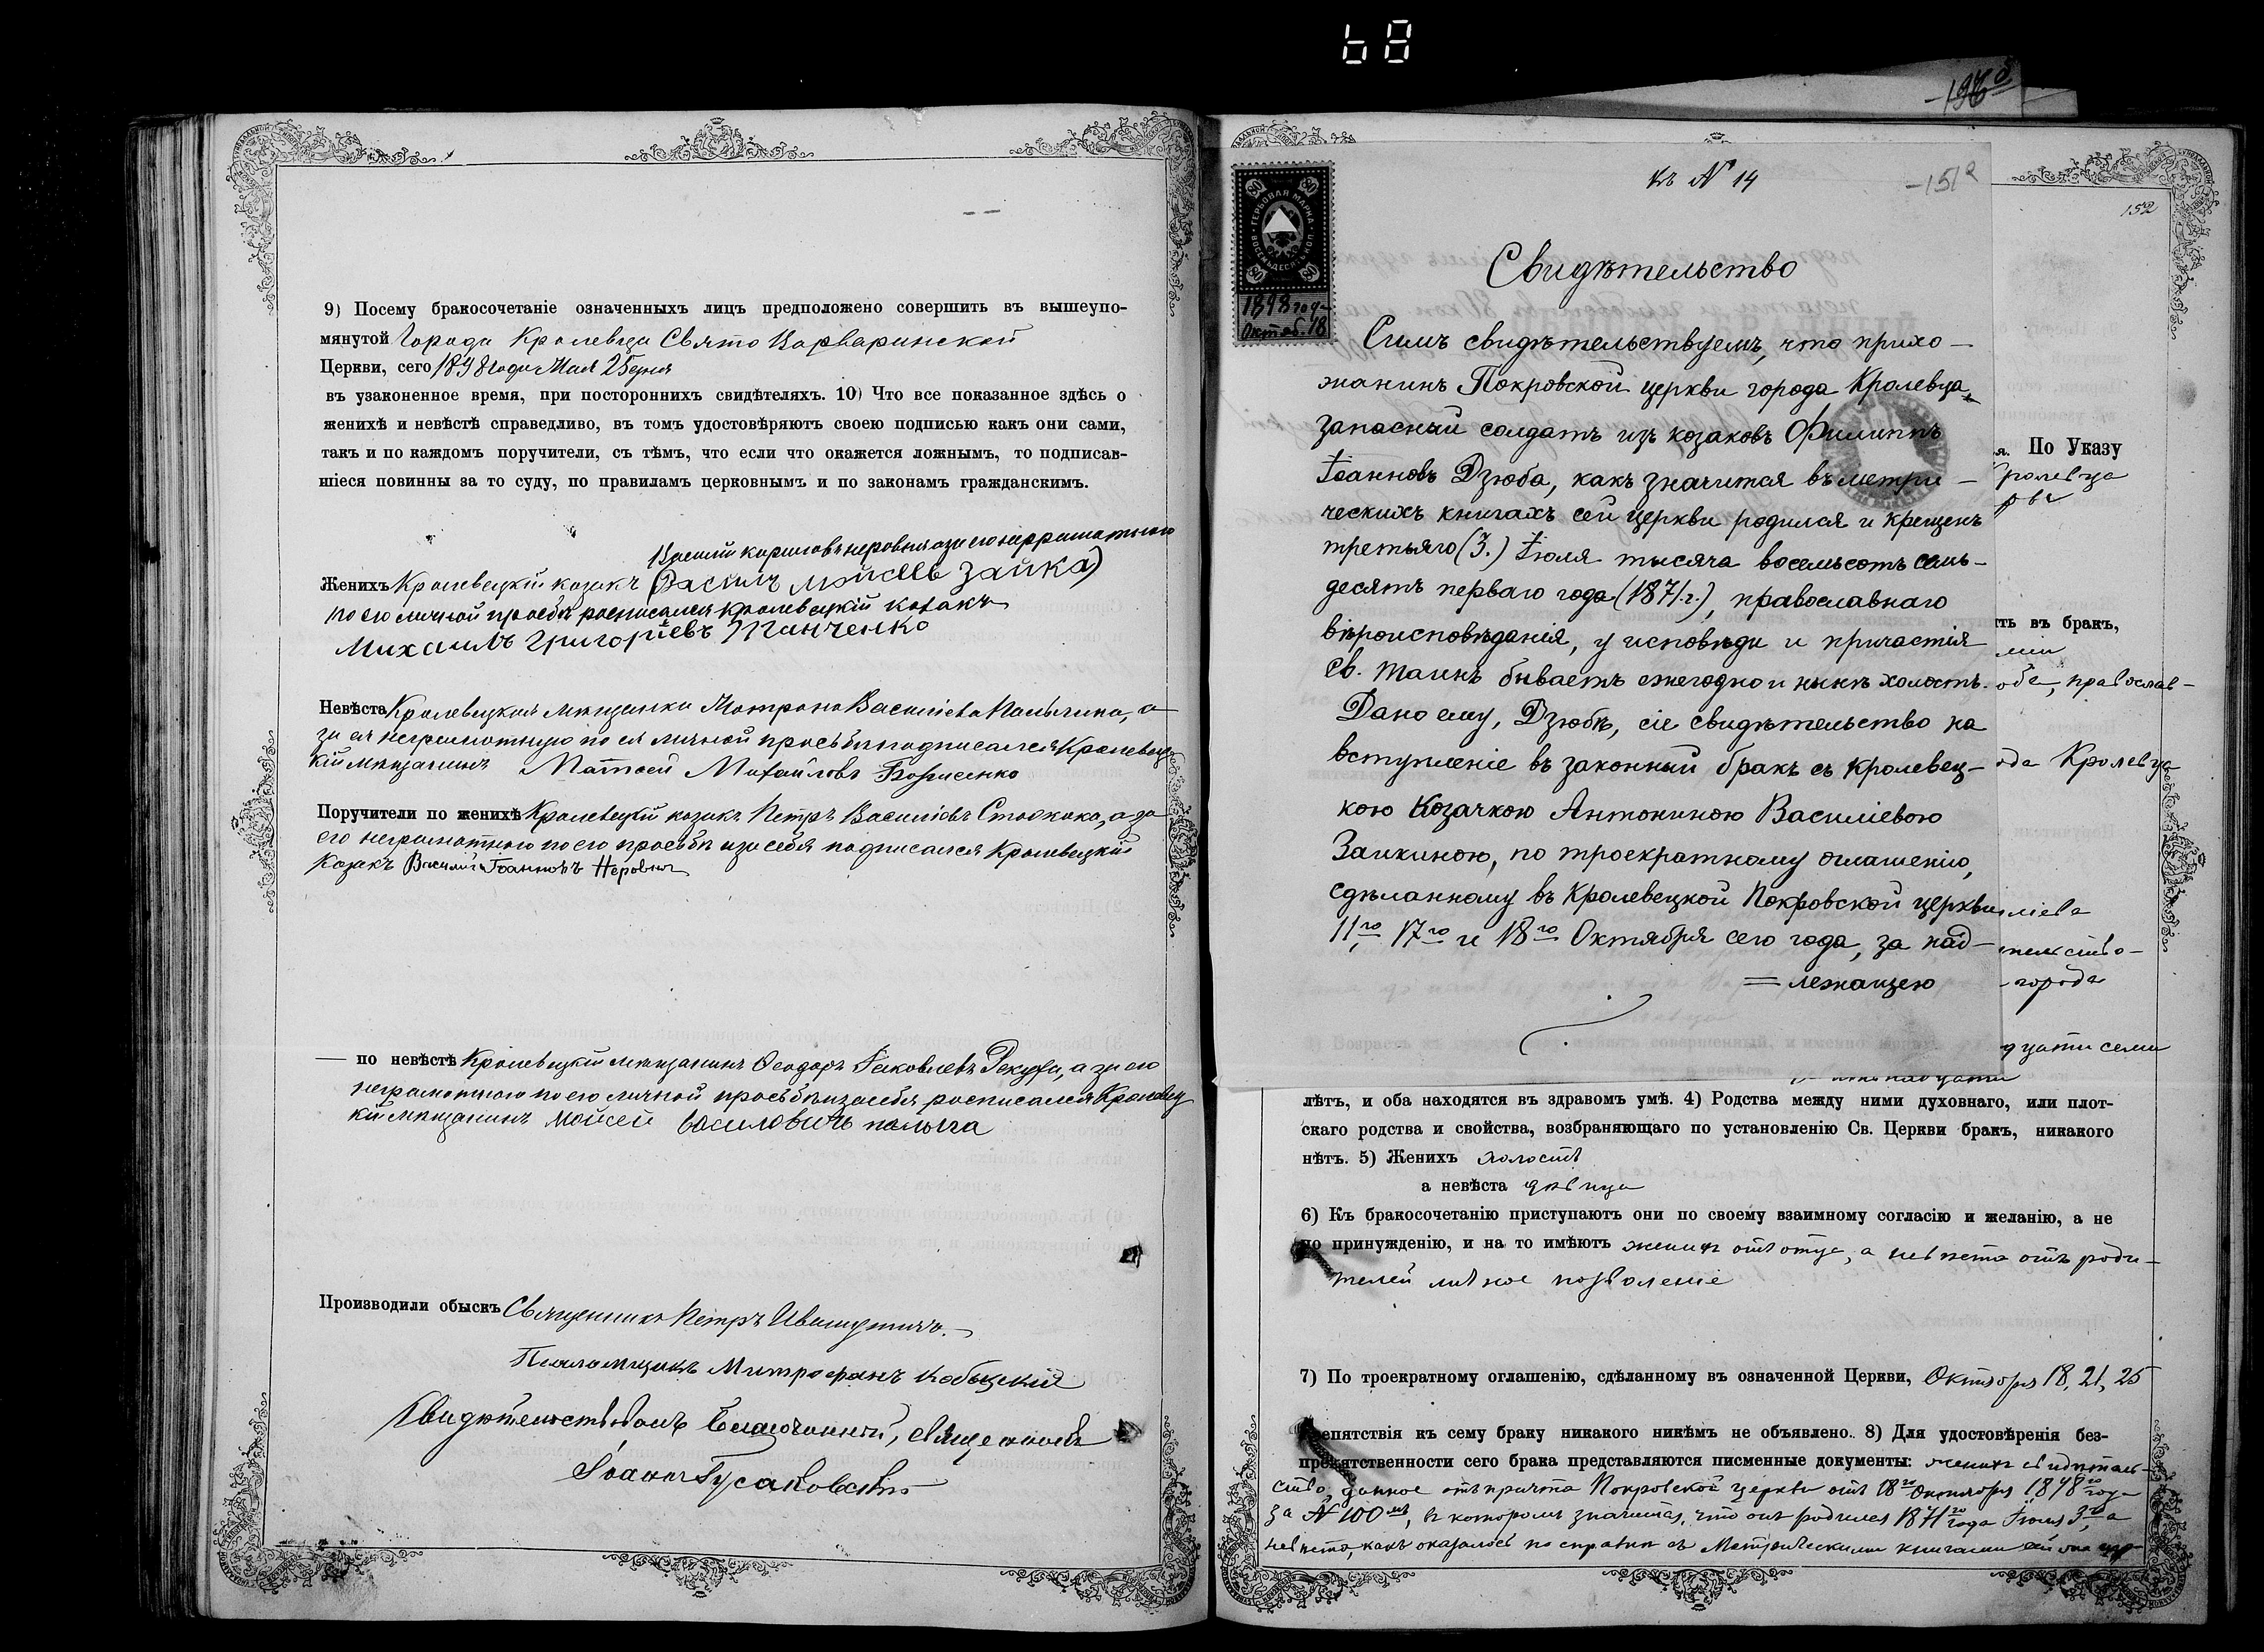 68
9) Посему бракосочетаніе означенныхъ лицъ предположено совершить въ вышеупо-
мянутой Города Кролевца Свято Варваринской
Церкви, сего 1898 года Мая 25 дня
въ узаконенное время, при постороннихъ свидѣтеляхъ. 10) Что все показанное здѣсь о
женихѣ и невѣстѣ справедливо, въ томъ удостовѣряютъ своею подписью какъ они сами,
такъ и по каждомъ поручители, съ тѣмъ, что если что окажется ложнымъ, то подписав-
шіеся повинны за то суду, по правиламъ церковнымъ и по законамъ гражданскимъ.
Женихъ Кролевецкій козакъ
по его личной просьбѣ росписался кролевецкій козакъ
Михаилъ Григоріевъ
Невѣста Кролевецкая мѣщанка Матрона Васильева Палыгина, а
за ея неграмотную по ея личной просьбѣ подписался Кролевец
кій мѣщанинъ Матвей Михайловъ Борисенко
Поручители по женихѣ Кролевецкій козакъ Петръ Василіевъ а за
его неграмотного по его просьбѣ и за себя подписался Кролевецкій
Козакъ Василій Іоанновъ Неровня
— по невѣстѣ Кролевецкій мѣщанинъ Ѳеодоръ Іаковлевъ а за его
неграмотного по его личной просьбѣ и за себя росписался Кролевец
кій мѣщанинъ Мойсей Василовичъ палыга
Производили обыскъ Священникъ Петръ
Псаломщикъ Митрофанъ
Свидѣтельствовалъ Благочинный, священникъ
Іоаннъ Гусаковскій
196
къ № 14
151а
152
ГЕРБОВАЯ МАРКА
ВОСЕМЬДЕСЯТЪ КОП.
80
1898 год
Октяб. 18
Свидѣтельство
Симъ свидѣтельствуемъ, что прихо-
жанинъ Покровской церкви города Кролевца,
запасный солдатъ изъ козаковъ Филиппъ
Іоанновъ Дзюба, какъ значится въ метри-
ческихъ книгахъ сей церкви родился и крещенъ
третьяго (3.) Іюля тысяча восемьсотъ семь-
десятъ перваго года (1871.г.), православнаго
вѣроисповѣданія, у исповѣди и причастія
Св. Таинъ бываетъ ежегодно и нынѣ холостъ.
Дано ему, Дзюбѣ, сіе свидѣтельство на
вступленіе въ законный бракъ съ Кролевец-
кою Козачкою Антониною Василіевою
Заикиною, по троекратному оглашенію,
сдѣланному въ Кролевецкой Покровской церкви
11го, 17го и 18го Октября сего года, за над-
= лежащею
я. По Указу
Кролевца
ть въ бракъ,
обе, православ-
ода Кролевца
города
дцати семи
лѣтъ, и оба находятся въ здравомъ умѣ. 4) Родства между ними духовнаго, или плот-
скаго родства и свойства, возбраняющаго по установленію Св. Церкви бракъ, никакого
нѣтъ. 5) Женихъ холостъ
а невѣста дѣвица
6) Къ бракосочетанію приступаютъ они по своему взаимному согласію и желанію, а не
по принужденію, и на то имѣютъ женихъ отъ отца, а невѣста отъ роди-
телей личное позволеніе
7) По троекратному оглашенію, сдѣланному въ означенной Церкви, Октября 18, 21, 25
епятствія къ сему браку никакого никѣмъ не объявлено. 8) Для удостовѣренія без-
препятственности сего брака представляются писменные документы: женихъ свидѣтель-
ство, данное отъ причта Покровской церкви отъ 18го Октября 1898го года
за № 100мъ, въ которомъ значится, что онъ родился 1871го года Іюля 3го, а
невѣста, какъ оказалось по справкѣ съ Метрическими книгами